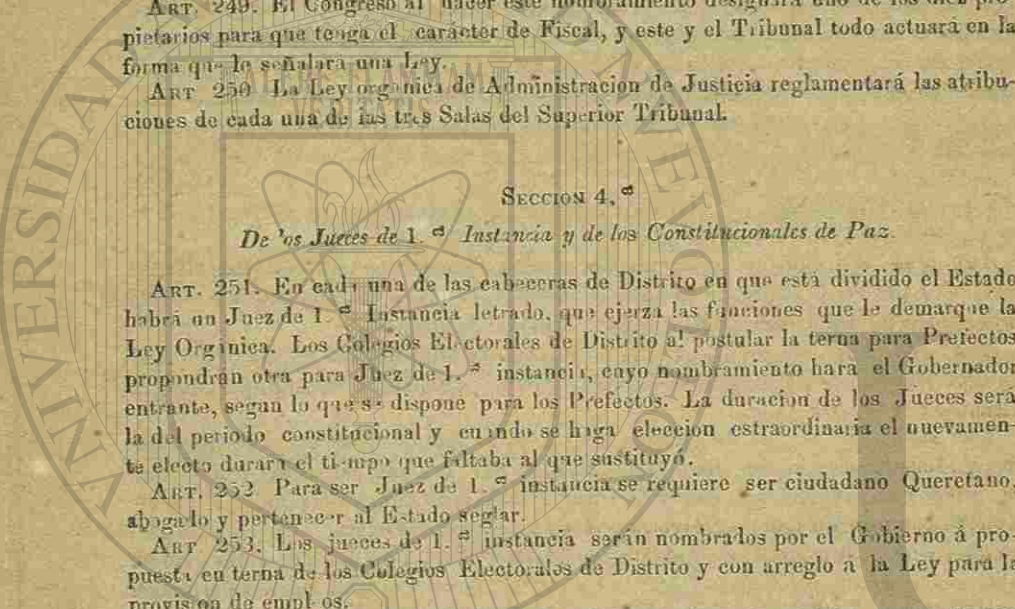 ART. 249. El Congreso al hacer este nombramiento designará uno de los diez pro-
pietarios para que tenga el carácter de Fiscal, y este y el Tribunal todo actuará en la
forma que le señalara una Ley.
ART 250 La Ley orgánica de Administracion de Justicia reglamentará las atribu-
ciones de cada una de las tres Salas del Superior Tribunal.
SECCION 4.ª
De los Jueces de 1.ª Instancia y de los Constitucionales de Paz.
ART. 251. En cada una de las cabeceras de Distrito en que está dividido el Estado
habrá un Juez de 1.ª Instancia letrado, que ejerza las funciones que le demarque la
Ley Orgánica. Los Colegios Electorales de Distrito al postular la terna para Prefectos
propondrán otra para Juez de 1.ª instancia, cuyo nombramiento hara el Gobernador
entrante, segun lo que se dispone para los Prefectos. La duracion de los Jueces será
la del periodo constitucional y cuando se haga eleccion estraordinaria el nuevamen-
te electo durará el tiempo que faltaba al que sustituyó.
ART. 252 Para ser Juez de 1.ª instancia se requiere ser ciudadano Queretano,
abogado y pertenecer al Estado seglar.
ART 253. Los jueces de 1.ª instancia serán nombrados por el Gobierno á pro-
puesta en terna de los Colegios Electorales de Distrito y con arreglo á la Ley para la
provision de empleos.
ALERE FLAMMAM
VERITATIS
UNIVERSIDAD